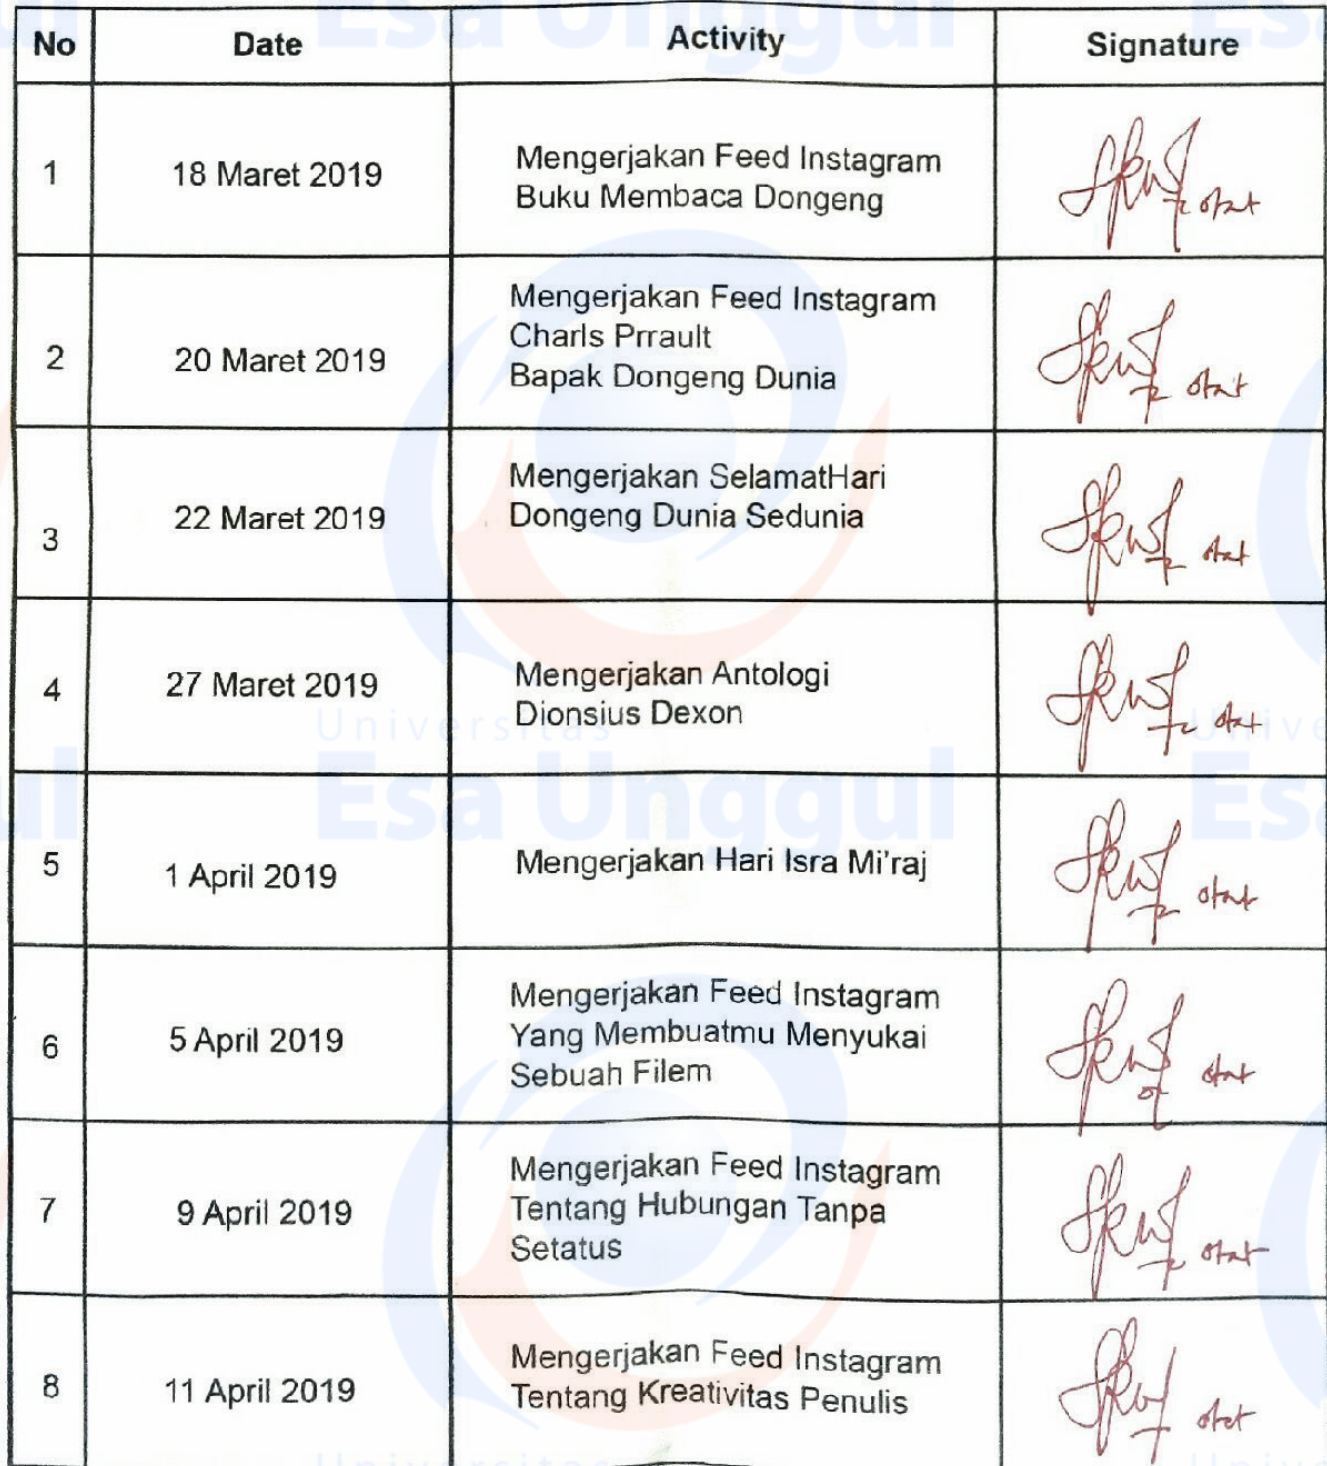 No Date Activity Signature
1 18 Maret 2019 Mengerjakan Feed Instagram
Buku Membaca Dongeng
2 20 Maret 2019 Mengerjakan Feed Instagram
Charls Prrault
Bapak Dongeng Dunia
3 22 Maret 2019 Mengerjakan SelamatHari
Dongeng Dunia Sedunia
4 27 Maret 2019 Mengerjakan Antologi
Dionsius Dexon
Universitas
Esa Unggul
5 1 April 2019 Mengerjakan Hari Isra Mi'raj
6 5 April 2019 Mengerjakan Feed Instagram
Yang Membuatmu Menyukai
Sebuah Filem
7 9 April 2019 Mengerjakan Feed Instagram
Tentang Hubungan Tanpa
Setatus
8 11 April 2019 Mengerjakan Feed Instagram
Tentang Kreativitas Penulis